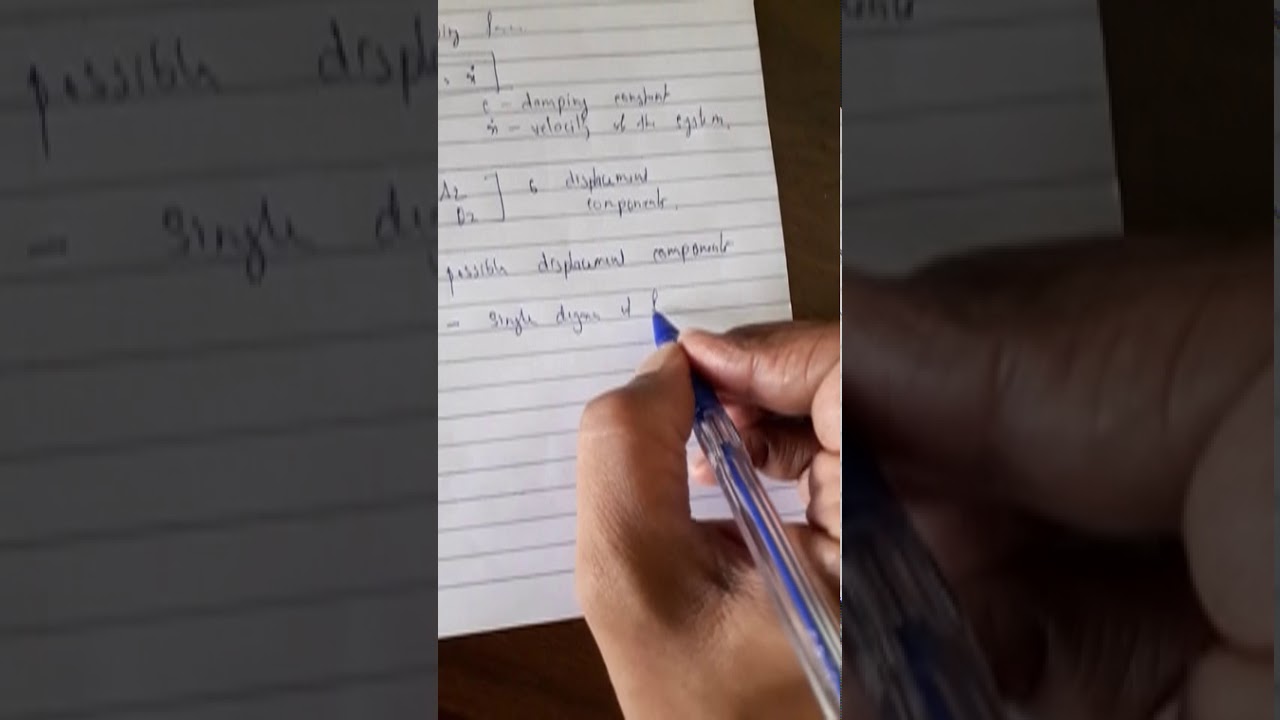 ẋ
c - damping constant
ẋ - velocity of the system.
Δ2
θ2
6 displacement
components.
possible displacement components
- single degree of f